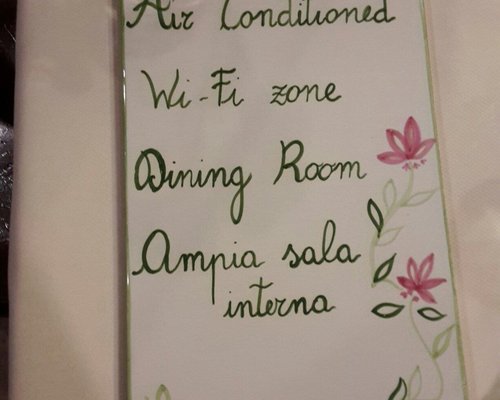 Air Conditioned
Wi-Fi zone
Dining Room
Ampia sala
interna